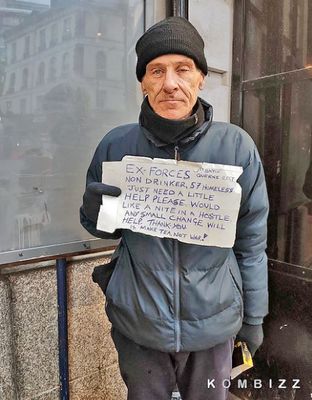 EX-FORCES
NON DRINKER, 57 HOMELESS
JUST NEED A LITTLE
HELP PLEASE. WOULD
LIKE A NITE IN A HOSTLE
ANY SMALL CHANGE WILL
HELP. THANK YOU
MAKE TEA, NOT WAR!
KOMBIZZ